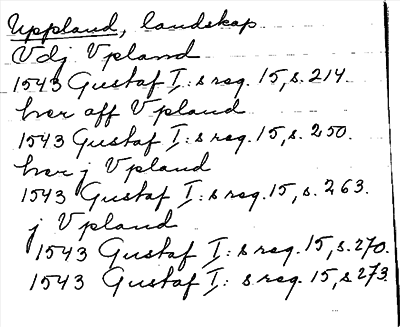 Uppland, landskap
Vdj Vpland
1543 Gustaf I:s reg. 15, s. 214.
her off Vpland
1543 Gustaf I:s reg. 15, s. 250.
her j Vpland
1543 Gustaf I:s reg. 15, s. 263.
j Vpland
1543 Gustaf I:s reg. 15, s. 270.
1543 Gustaf I:s reg. 15, s 273.